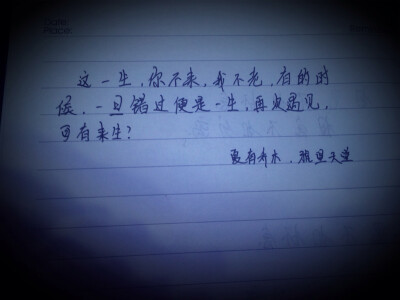 这一生,你不来,我不老,有的时
候,一旦错过便是一生,再次遇见,
可有来生?
夏有乔木,雅望天堂